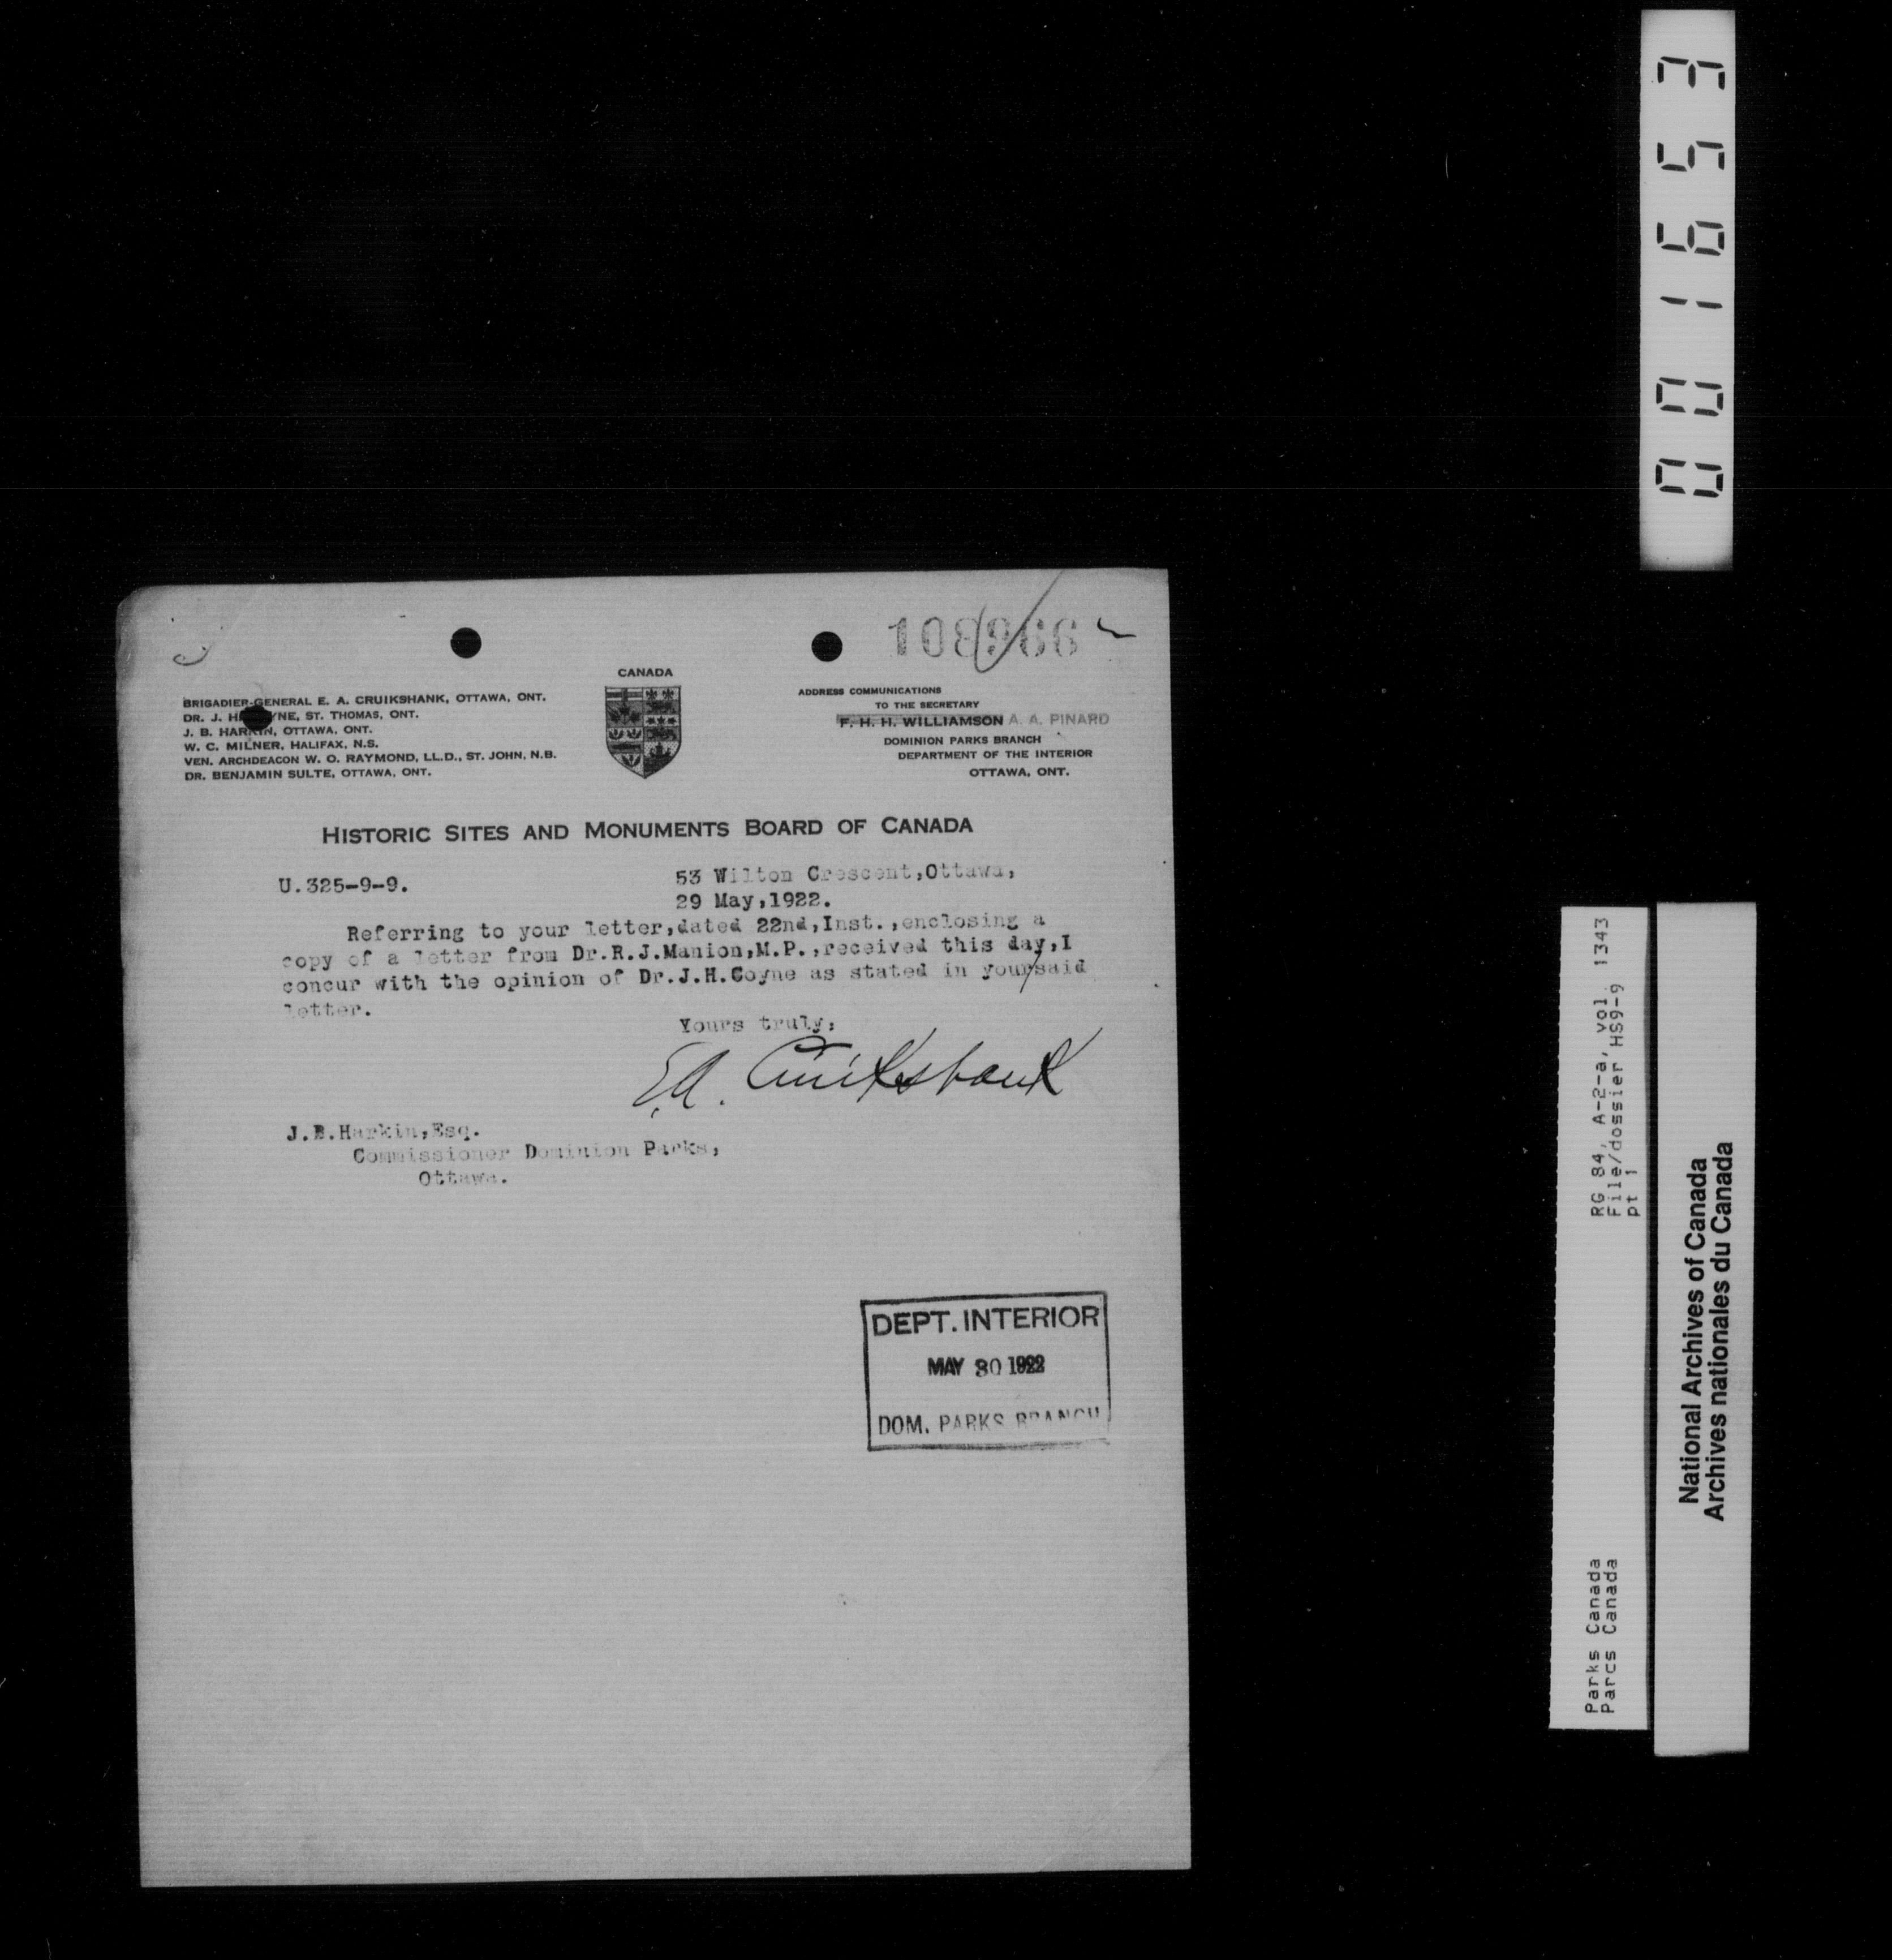 108966
CANADA
BRIGADIER-GENERAL E. A. CRUIKSHANK, OTTAWA, ONT.
DR. J. H. YNE, ST. THOMAS, ONT.
J. B. HARKIN, OTTAWA, ONT.
W. C. MILNER, HALIFAX, N.S.
VEN. ARCHDEACON W. O. RAYMOND, LL.D., ST. JOHN, N.B.
DR. BENJAMIN SULTE, OTTAWA, ONT.
ADDRESS COMMUNICATIONS
TO THE SECRETARY
F. H. H. WILLIAMSON A. A. PINARD
DOMINION PARKS BRANCH
DEPARTMENT OF THE INTERIOR
OTTAWA, ONT.
HISTORIC SITES AND MONUMENTS BOARD OF CANADA
U.325-9-9.
53 Wilton Crescent,Ottawa,
29 May,1922.
Referring to your letter,dated 22nd,Inst.,enclosing a
copy of a letter from Dr.R.J.Manion,M.P.,received this day,I
concur with the opinion of Dr.J.H.Coyne as stated in your/said
letter.
Yours truly,
E.A. Cruikshank
J.B.Harkin,Esq.
Commissioner Dominion Parks,
Ottawa.
DEPT. INTERIOR
MAY 30 1922
DOM. PARKS BRANCH
001653
RG 84, A-2-a, vol. 1343
File/dossier HS9-9
pt 1
Parks Canada
Parcs Canada
National Archives of Canada
Archives nationales du Canada